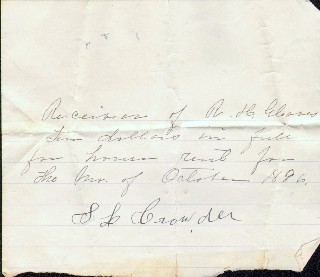 Received of R. H. Gleaves
ten dollars in full
for house rent for
the mo. of October 1876
S L Crowder